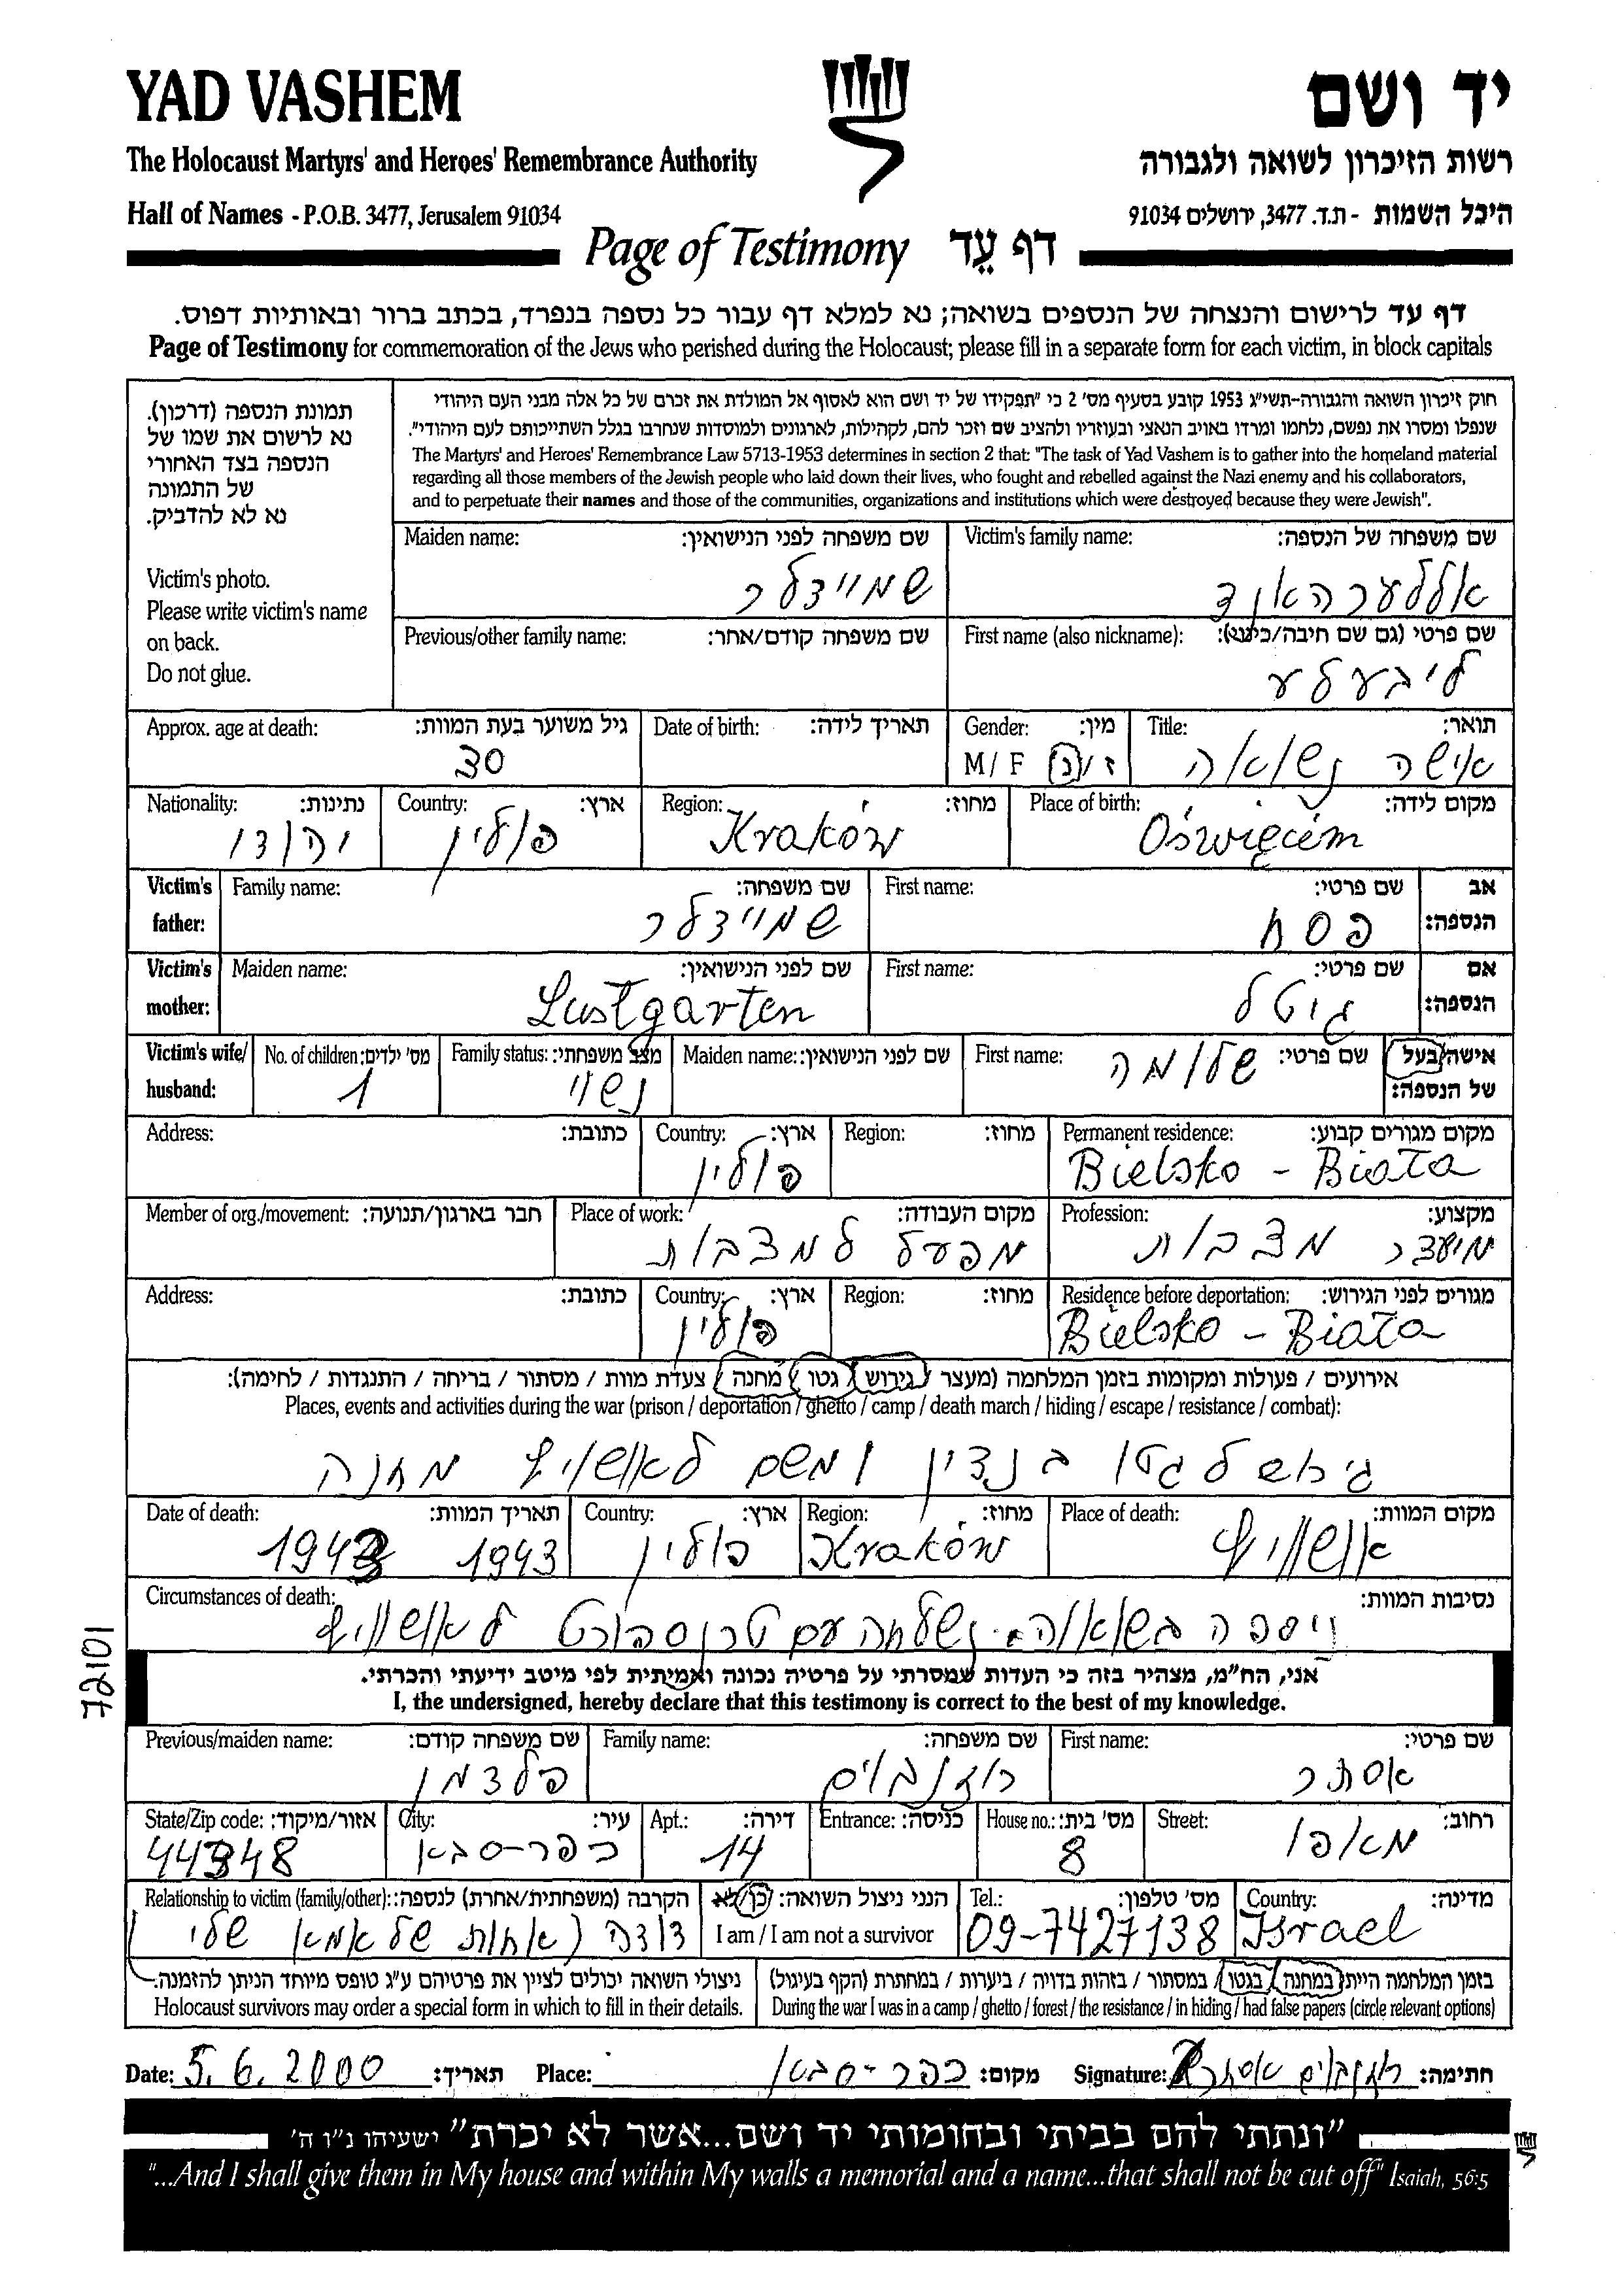 YAD VASHEM
יד ושם
The Holocaust Martyrs' and Heroes' Remembrance Authority
רשות הזיכרון לשואה ולגבורה
Hall of Names - P.O.B. 3477, Jerusalem 91034
היכל השמות - ת.ד. 3477, ירושלים 91034
Page of Testimony דף עֵד
דף עד לרישום והנצחה של הנספים בשואה; נא למלא דף עבור כל נספה בנפרד, בכתב ברור ובאותיות דפוס.
Page of Testimony for commemoration of the Jews who perished during the Holocaust; please fill in a separate form for each victim, in block capitals
תמונת הנספה (דרכון).
נא לרשום את שמו של
הנספה בצד האחורי
של התמונה
נא לא להדביק.
Victim's photo.
Please write victim's name
on back.
Do not glue.
חוק זיכרון השואה והגבורה-תשי"ג 1953 קובע בסעיף מס' 2 כי "תפקידו של יד ושם הוא לאסוף אל המולדת את זכרם של כל אלה מבני העם היהודי
שנפלו ומסרו את נפשם, נלחמו ומרדו באויב הנאצי ובעוזריו ולהציב שם וזכר להם, לקהילות, לארגונים ולמוסדות שנחרבו בגלל השתייכותם לעם היהודי".
The Martyrs' and Heroes' Remembrance Law 5713-1953 determines in section 2 that: "The task of Yad Vashem is to gather into the homeland material
regarding all those members of the Jewish people who laid down their lives, who fought and rebelled against the Nazi enemy and his collaborators,
and to perpetuate their names and those of the communities, organizations and institutions which were destroyed because they were Jewish".
Victim's family name: שם משפחה של הנספה:
אללערהאנד
Maiden name: שם משפחה לפני הנישואין:
שמיידלר
First name (also nickname): שם פרטי (גם שם חיבה/כינוי):
ליבעלע
Previous/other family name: שם משפחה קודם/אחר:
Title: תואר:
אישה נשואה
Gender: מין:
M/ F ז /נ
Date of birth: תאריך לידה:
Approx. age at death: גיל משוער בעת המוות:
30
Place of birth: מקום לידה:
Oświęcim
Region: מחוז:
Kraków
Country: ארץ:
פולין
Nationality: נתינות:
יהודי
Victim's father: אב הנספה:
First name: שם פרטי:
פסח
Family name: שם משפחה:
שמיידלר
Victim's mother: אם הנספה:
First name: שם פרטי:
גיטל
Maiden name: שם לפני הנישואין:
Lustgarten
Victim's wife/ husband: אישה/בעל של הנספה:
First name: שם פרטי:
שלומה
Maiden name: שם לפני הנישואין:
Family status: מצב משפחתי:
נשוי
No. of children: מס' ילדים:
1
Permanent residence: מקום מגורים קבוע:
Bielsko - Biała
Region: מחוז:
Country: ארץ:
פולין
Address: כתובת:
Profession: מקצוע:
מיעצר מצבות
Place of work: מקום העבודה:
מפעל למצבות
Member of org./movement: חבר בארגון/תנועה:
Residence before deportation: מגורים לפני הגירוש:
Bielsko - Biała
Region: מחוז:
Country: ארץ:
פולין
Address: כתובת:
אירועים / פעולות ומקומות בזמן המלחמה (מעצר / גירוש / גטו / מחנה / צעדת מוות / מסתור / בריחה / התנגדות / לחימה):
Places, events and activities during the war (prison / deportation / ghetto / camp / death march / hiding / escape / resistance / combat):
גירוש לגטו בנדין ומשם לאושוויץ מחנה
Place of death: מקום המוות:
אושוויץ
Region: מחוז:
Kraków
Country: ארץ:
פולין
Date of death: תאריך המוות:
1943 1943
Circumstances of death: נסיבות המוות:
ניספה בשואה. נשלחה עם טרנספורט לאושוויץ
72101
אני, הח"מ, מצהיר בזה כי העדות שמסרתי על פרטיה נכונה ואמיתית לפי מיטב ידיעתי והכרתי.
I, the undersigned, hereby declare that this testimony is correct to the best of my knowledge.
First name: שם פרטי:
אסתר
Family name: שם משפחה:
רוזנבוים
Previous/maiden name: שם משפחה קודם:
פלצמן
Street: רחוב:
מאפו
House no.: מס' בית:
8
Entrance: כניסה:
Apt.: דירה:
14
City: עיר:
כפר-סבא
State/Zip code: אזור/מיקוד:
44348
Country: מדינה:
Israel
Tel.: מס' טלפון:
09-7427138
הנני ניצול השואה: כן/לא
I am / I am not a survivor
Relationship to victim (family/other): הקרבה (משפחתית/אחרת) לנספה:
דודה (אחות של אמא שלי)
בזמן המלחמה הייתי במחנה / בגטו / במסתור / בזהות בדויה / ביערות / במחתרת (הקף בעיגול)
During the war I was in a camp / ghetto / forest / the resistance / in hiding / had false papers (circle relevant options)
ניצולי השואה יכולים לציין את פרטיהם ע"ג טופס מיוחד הניתן להזמנה.
Holocaust survivors may order a special form in which to fill in their details.
Date: 5.6.2000 תאריך: Place: כפר-סבא מקום: Signature: רוזנבוים אסתר חתימה:
"ונתתי להם בביתי ובחומותי יד ושם...אשר לא יכרת" ישעיהו נ"ו ה'
"...And I shall give them in My house and within My walls a memorial and a name...that shall not be cut off" Isaiah, 56:5